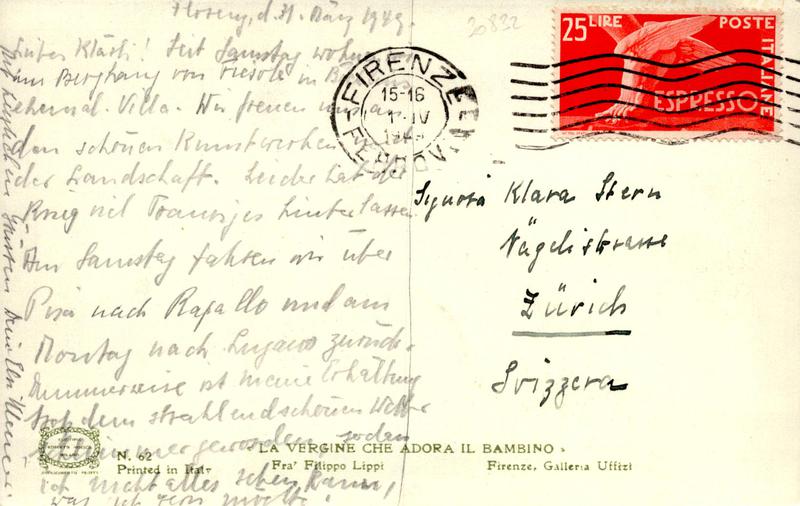 Florenz, d. 31. März 1949.
Liebes Klärli! Seit Samstag wohnen
am Berghang von Fiesole in
ehemal. Villa. Wir freuen uns an
den schönen Kunstwerken
der Landschaft. Leider hat der
Krieg viel Trauriges hinterlassen.
Am Samstag fahren wir über
Pisa nach Rapallo und am
Montag nach Lugano zurück.
Dummerweise ist meine Erkältung
trotz dem strahlendschönen Wetter
schlimmer geworden, sodass
ich nicht alles sehen kann,
was ich gern möchte!
Mit herzlichen Grüssen Dein
20822
25 LIRE POSTE ITALIANE
ESPRESSO
FIRENZE
15-16
IV
FERROV
Signora Klara Stern
Nägelistrasse
Zürich
Svizzera
N. 62
Printed in Italy
«LA VERGINE CHE ADORA IL BAMBINO»
Fra' Filippo Lippi Firenze, Galleria Uffizi